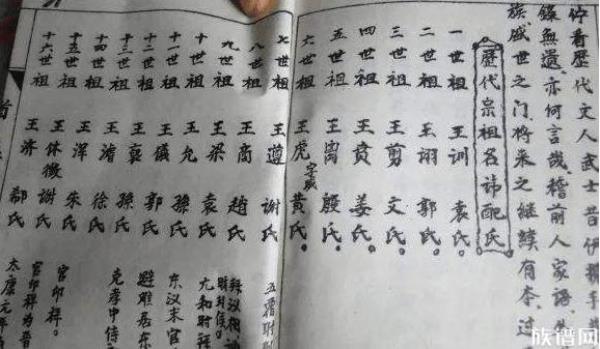 佇看歷代文人武士昔伊
錄無遺亦何言哉稽前人家語
族戚世之门将来之继续有本过
歷代宗祖名讳配氏
一世祖 王训 袁氏。
二世祖 王翊 郭氏。
三世祖 王剪 文氏。
四世祖 王贲 姜氏。
五世祖 王离 殷氏。
六世祖 王虎 字威 黄氏。
七世祖 王遵 谢氏 五
八世祖 王商 趙氏
九世祖 王梁 袁氏
十世祖 王允 孫氏 东汉末官
十一世祖 王儀 郭氏 避难居东
十二世祖 王裒 孫氏 克孝中
十三世祖 王濬 徐氏
十四世祖 王浑 朱氏 官印祥。
十五世祖 王休徵 謝氏 官印祥为晋
十六世祖 王济 郗氏 太康元年
族谱网